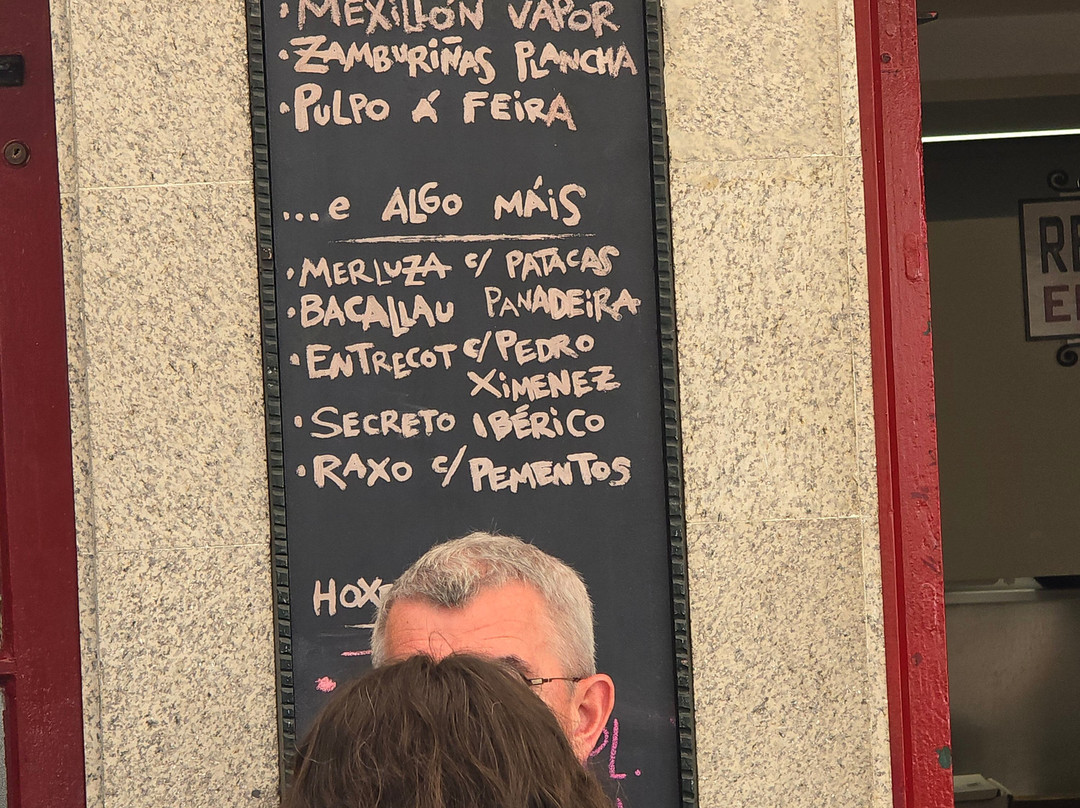 ·MEXILLÓN VAPOR
·ZAMBURIÑAS PLANCHA
·PULPO Á FEIRA
...e ALGO MÁIS
·MERLUZA c/ PATACAS
·BACALLAU PANADEIRA
·ENTRECOT c/ PEDRO
XIMENEZ
·SECRETO IBÉRICO
·RAXO c/ PEMENTOS